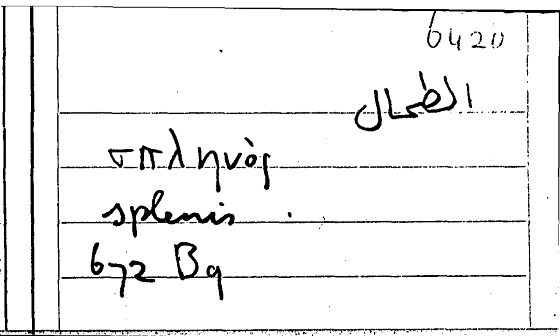 6420
الطحال
σπληνὸς
splenis.
672 Bq